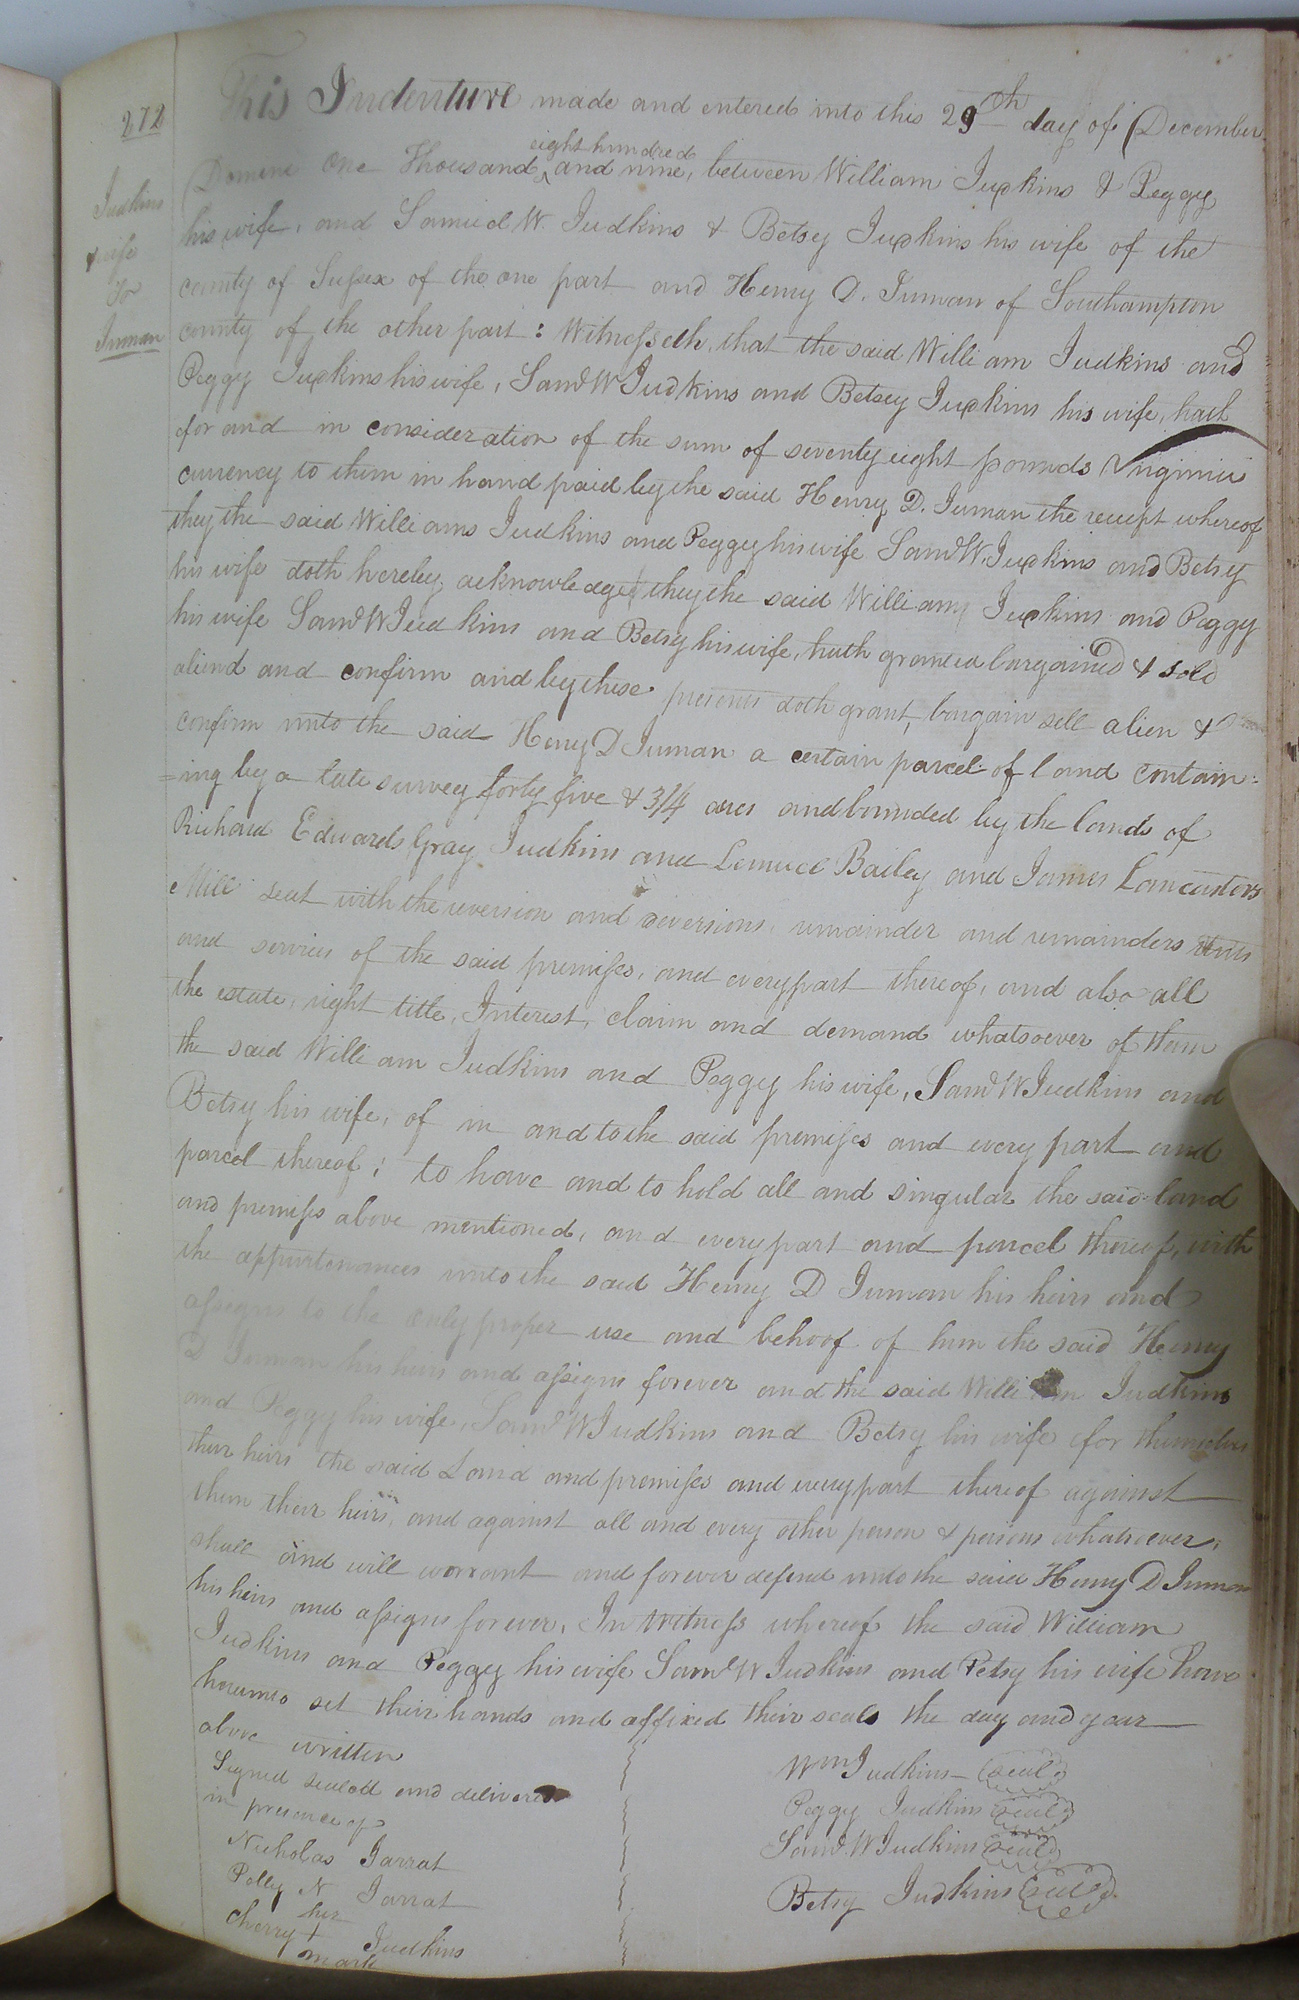 272
Judkins
& wife
To
Inman
This Indenture made and entered into this 29th day of December
eight hundred
Domini One Thousand ^ and nine, between William Judkins & Peggy
his wife, and Samuel W. Judkins & Betsy Judkins his wife of the
county of Sussex of the one part and Henry D. Inman of Southampton
county of the other part: Witnesseth, that the said William Judkins and
Peggy Judkins his wife, Saml W Judkins and Betsey Judkins his wife, hath
for and in consideration of the sum of seventy eight pounds Virginia
currency to them in hand paid by the said Henry D. Inman the receipt whereof
they the said Williams Judkins and Peggy his wife Saml W. Judkins and Betsy
his wife doth hereby acknowledge they the said William Judkins and Peggy
his wife Saml W Judkins and Betsy his wife, hath granted bargained & sold
aliend and confirm and by these presents doth grant, bargain sell alien &
confirm unto the said Henry D Inman a certain parcel of land contain=
=ing by a late survey forty five & 3/4 acres and bounded by the lands of
Richard Edwards Gray Judkins and Lemuel Bailey and James Lancasters
Mill seat with the reversion and reversions, remainder and remainders rents
and services of the said premises, and every part thereof, and also all
the estate, right title, Interest, claim and demand whatsoever of them
the said William Judkins and Peggy his wife, Saml W Judkins and
Betsy his wife, of in and to the said premises and every part and
parcel thereof; to have and to hold all and singular the said land
and premises above mentioned, and every part and parcel thereof, with
the appurtenances unto the said Henry D Inman his heirs and
assigns to the only proper use and behoof of him the said Henry
D Inman his heirs and assigns forever and the said William Judkins
and Peggy his wife, Saml W Judkins and Betsy his wife for themselves
their heirs the said Land and premises and every part thereof against
them their heirs, and against all and every other person & persons whatsoever,
shall and will warrant and forever defend unto the said Henry D Inman
his heirs and assigns forever, In witness whereof the said William
Judkins and Peggy his wife Saml W Judkins and Betsy his wife have
hereunto set their hands and affixed their seals the day and year
above written
Signed sealed and delivered
in presence of
Nicholas Jarrat
Polly N Jarrat
her
Cherry + Judkins
mark
Wm Judkins - seal
Peggy Judkins seal
Saml. W Judkins seal
Betsy Judkins seal